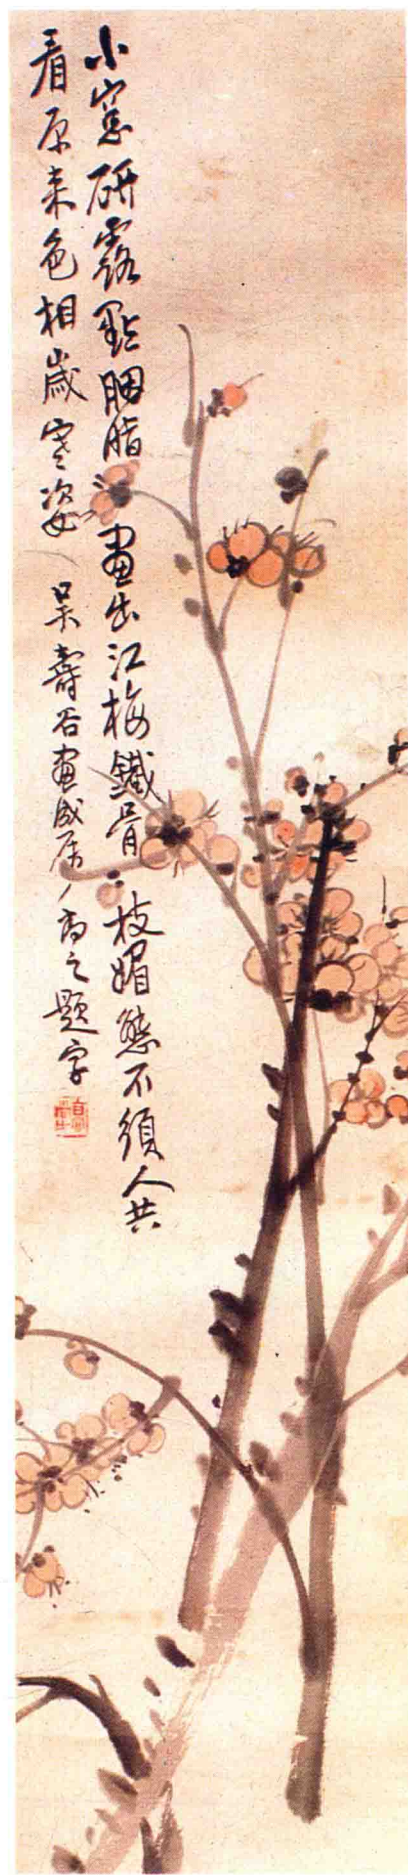 小窓研露點胭脂畫出江梅鐵骨枝媚態不須人共
看原來色相歲寒姿 吳壽谷畫成屬 為之題字